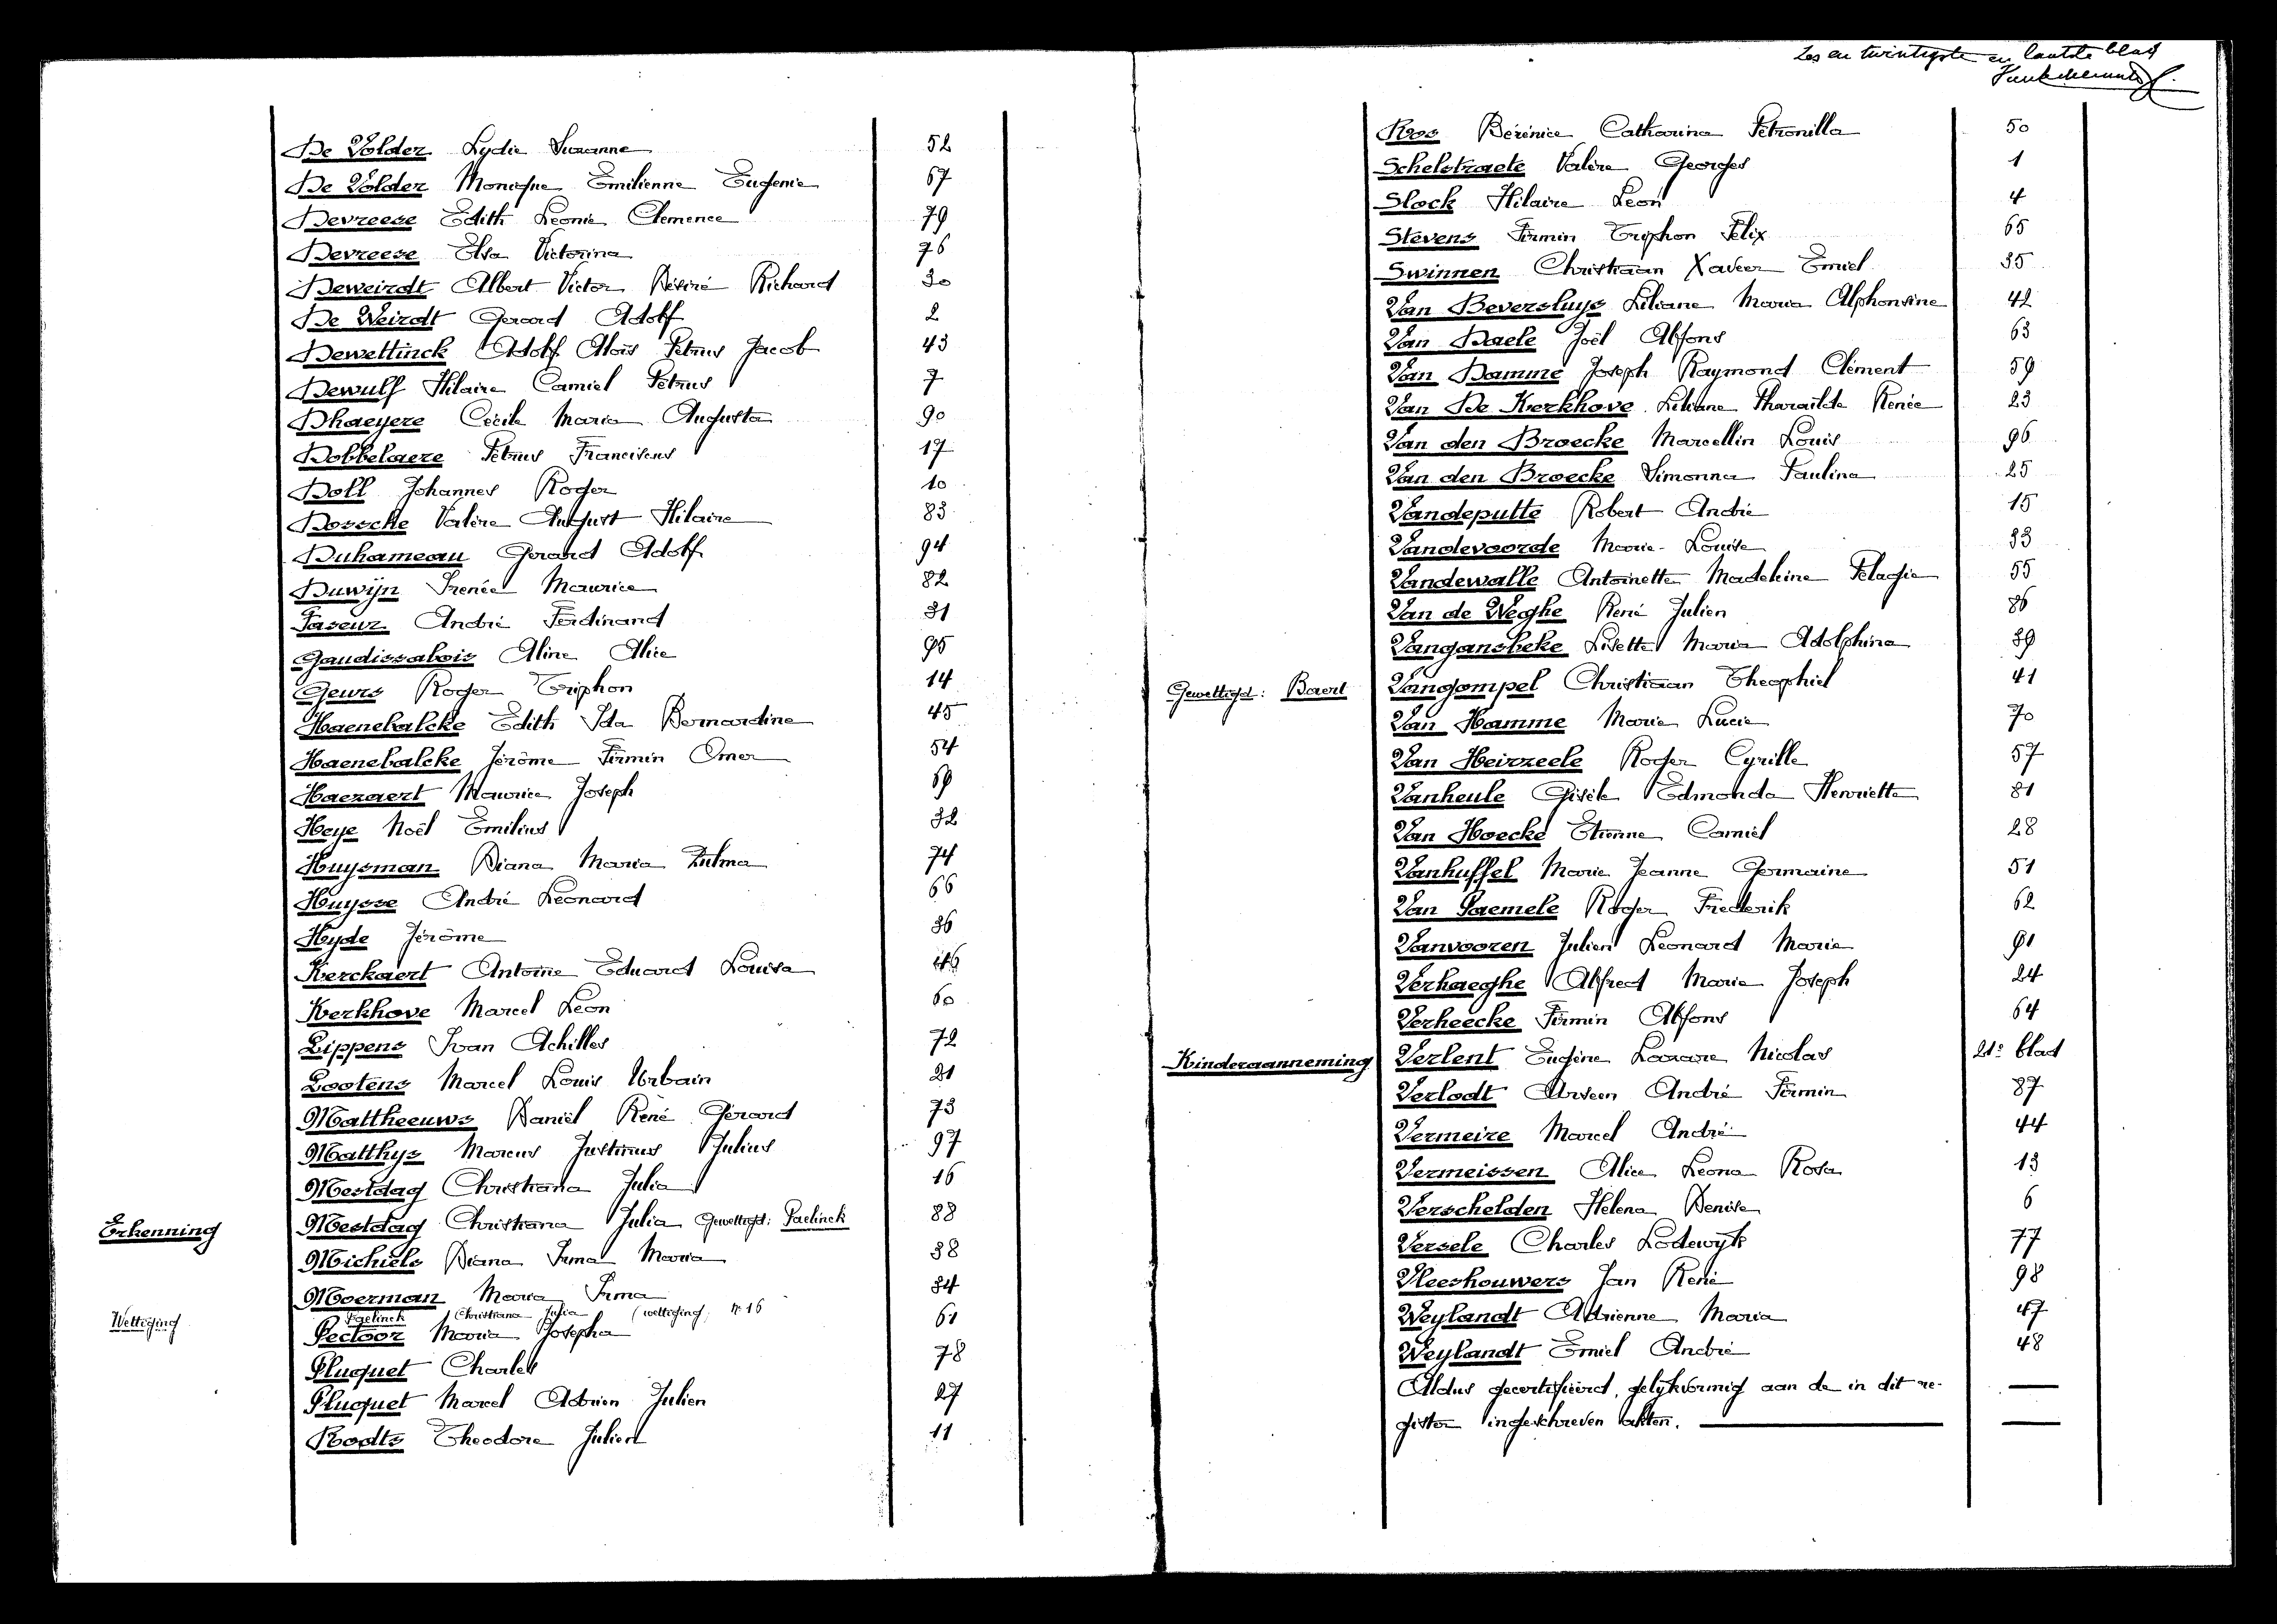 De Volder Lydie Suzanne 52
De Volder Monique Emilienne Eugenie 67
Devreese Edith Leonie Clemence 79
Devreese Elsa Victorina 76
Deweirdt Albert Victor Désiré Richard 30
De Weirdt Gerard Adolf 2
Dewettinck Adolf Aloïs Petrus Jacob 43
Dewulf Hilaire Camiel Petrus 7
Dhaeyere Cécile Maria Augusta 90
Dobbelaere Petrus Franciscus 17
Doll Johannes Roger 10
Dossche Valère August Hilaire 83
Duhameau Gerard Adolf 94
Duwijn Irenée Maurice 82
Faseur André Ferdinand 31
Gaudissabois Aline Alice 95
Geurs Roger Triphon 14
Haenebalcke Edith Ida Bernardine 45
Haenebalcke Jérôme Firmin Omer 54
Haezaert Maurice Joseph 69
Heye Noël Emilius 32
Huysman Diana Maria Zulma 74
Huysse André Leonard 66
Hyde Jérôme 36
Kerckaert Antoine Eduard Louisa
Kerkhove Marcel Leon 60
Lippens Ivan Achilles 72
Lootens Marcel Louis Urbain 21
Mattheeuws Daniël René Gérard 73
Matthys Marcus Justinus Julius 97
Mestdag Christiana Julia 16
Erkenning Mestdag Christiana Julia Gewettigd: Paelinck 88
Michiels Diana Irma Maria 38
Moerman Maria Irma 34
Wettiging Paelinck Christiana Julia (wettiging) N° 16
Pectoor Maria Josepha 61
Pluquet Charles 78
Pluquet Marcel Adrien Julien 27
Rodts Theodore Julien 11
Zes en twintigste en laatste blad
Roos Bérénice Catharina Petronilla 50
Schelstraete Valère Georges 1
Slock Hilaire Leon 4
Stevens Firmin Triphon Felix 65
Swinnen Christiaan Xaveer Emiel 35
Van Beversluys Liliane Maria Alphonsine 42
Van Daele Joël Alfons 63
Van Damme Joseph Raymond Clément 59
Van De Kerkhove Liliane Tharailde Renée 23
Van den Broecke Marcellin Louis 96
Van den Broecke Simonna Paulina 25
Vandeputte Robert André 15
Vandevoorde Marie-Louise 33
Vandewalle Antoinette Madeleine Pelagie 55
Van de Weghe René Julien 86
Vangansbeke Lisette Maria Adolphina 39
Gewettigd: Baert Vangompel Christiaan Theophiel 41
Van Hamme Maria Lucia 70
Van Heirzeele Roger Cyrille 57
Vanheule Gisèle Edmonda Henrietta 81
Van Hoecke Etienne Camiel 28
Vanhuffel Marie Jeanne Germaine 51
Van Paemele Roger Frederik 62
Vanvooren Julien Leonard Marie 91
Verhaeghe Alfred Maria Joseph 24
Verheecke Firmin Alfons 64
Kinderaanneming Verlent Eugène Lazare Nicolas 21e blad
Verlodt Arseen André Firmin 87
Vermeire Marcel André 44
Vermeissen Alice Leona Rosa 13
Verschelden Helena Denise 6
Versele Charles Lodewyk 77
Vleeshouwers Jan René 98
Weylandt Adrienne Maria 47
Weylandt Emiel André 48
Aldus gecertifieerd, gelykvormig aan de in dit re-
gister ingeschreven akten.